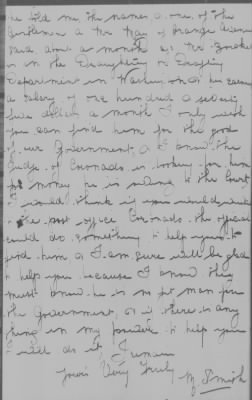 he told me the names one of the
Gentlemen a Mr Ray of Orange Avenue
said about a month ago Mr Smoker
is in the Draughting or Drafting
Department in Washington he earns
a salary of one hundred & seventy
five dollars a month I only wish
you can find him for the good
of our Government, as I know the
Judge of Coronado is looking for him
for money he is owing to the Court
I should think if you would write
to the post office Coronado the official
could do something to help you to
find him as I am sure will be glad
to help you because I know they
must know he is no fit man for
the Government, or if there is any
thing in my power to help you
I will do it I remain
Yours Very Truly
Smith